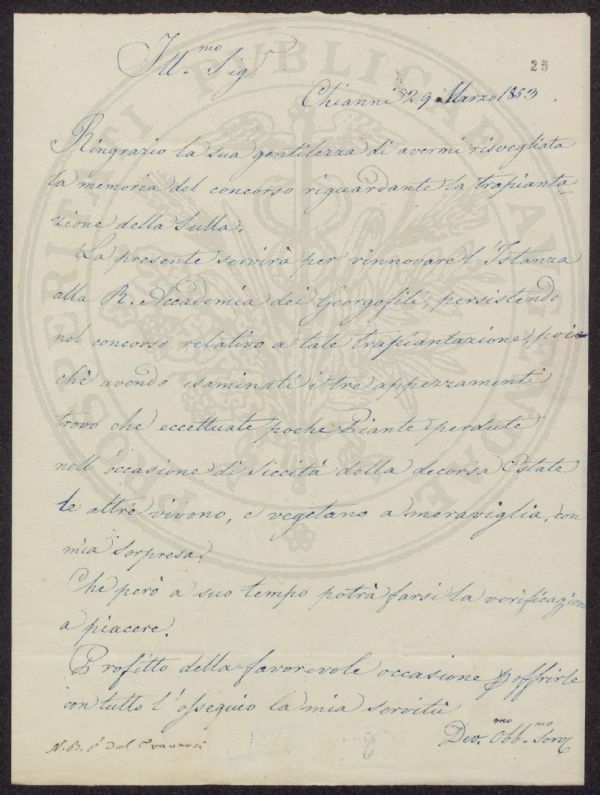 Ill.mo Sig.r
25
Chianni 29 Marzo 1853.
Ringrazio la sua gentilezza di avermi risvegliata
la memoria del concorso riguardante la trapianta-
zione della Sulla.
La presente servirà per rinnovare l'Istanza
alla R. Accademia dei Georgofili, persistendo
nel concorso relativo a tale trapiantazione, poic-
chè avendo esaminati i tre appezzamenti
trovo che eccettuate poche Piante perdute
nell'occasione di Siccità della decorsa Estate
le altre vivono, e vegetano a meraviglia, con
mia Sorpresa.
Che però a suo tempo potrà farsi la verificazione
a piacere.
Profitto della favorevole occasione p offrirle
con tutto l'ossequio la mia servitù
Dev.mo Obb.mo Serv.
N.B. è del
PROSPERITATI PUBLICAE AUGENDAE